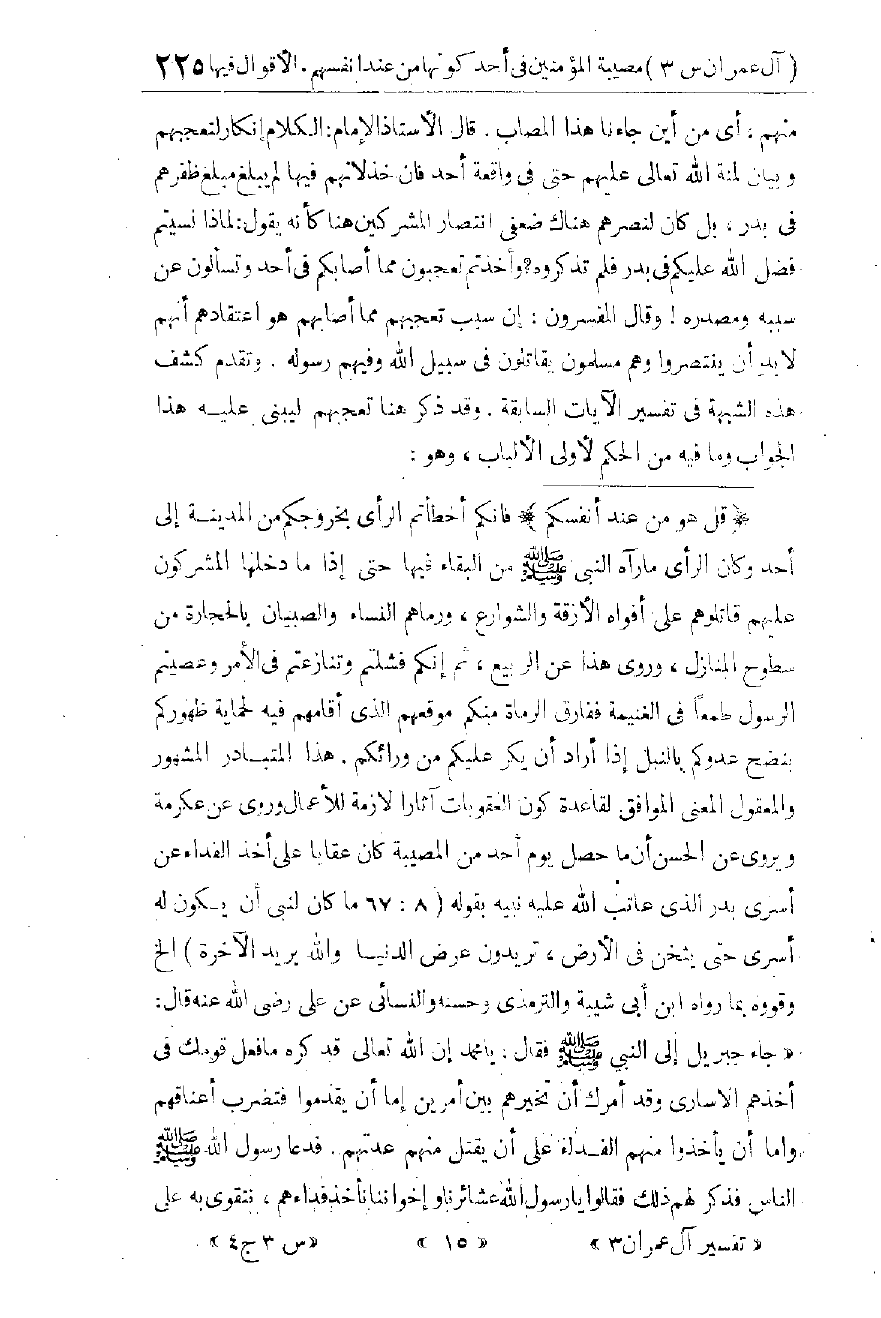 ( آل عمران س ٣ ) مصيبة المؤمنين فى أحد كونها من عند أنفسهم . الأقوال فيها ٢٢٥
منهم : أى من أين جاءنا هذا المصاب . قال الأستاذ الإمام : الكلام إنكار لتعجبهم
وبيان لمنة الله تعالى عليهم حتى فى واقعة أحد فان خذلانهم فيها لم يبلغ مبلغ ظفرهم
فى بدر ، بل كان لنصرهم هناك ضعفى انتصار المشركين هنا كأنه يقول : لماذا نسيتم
فضل الله عليكم فى بدر فلم تذكروه ? وأخذتم تعجبون مما أصابكم فى أحد وتسألون عن
سببه ومصدره ! وقال المفسرون : إن سبب تعجبهم مما أصابهم هو اعتقادهم أنهم
لا بد أن ينتصروا وهم مسلمون يقاتلون فى سبيل الله وفيهم رسوله . وتقدم كشف
هذه الشبهة فى تفسير الآيات السابقة . وقد ذكر هنا تعجبهم ليبنى عليه هذا
الجواب وما فيه من الحكم لأولى الألباب ، وهو :
﴿ قل هو من عند أنفسكم ﴾ فانكم أخطأتم الرأى بخروجكم من المدينة إلى
أحد وكان الرأى ما رآه النبى ﷺ من البقاء فيها حتى إذا ما دخلها المشركون
عليهم قاتلوهم على أفواه الأزقة والشوارع ، ورماهم النساء والصبيان بالحجارة من
سطوح المنازل ، وروى هذا عن الربيع ، ثم إنكم فشلتم وتنازعتم فى الأمر وعصيتم
الرسول طمعاً فى الغنيمة ففارق الرماة منكم موقعهم الذى أقامهم فيه لحماية ظهوركم
بنضح عدوكم بالنبل إذا أراد أن يكر عليكم من ورائكم . هذا المتبادر المشهور
والمعقول المعنى الموافق لقاعدة كون العقوبات آثارا لازمة للأعمال وروى عن عكرمة
ويروى عن الحسن أن ما حصل يوم أحد من المصيبة كان عقابا على أخذ الفداء عن
أسرى بدر الذى عاتب الله عليه نبيه بقوله ( ٨ : ٦٧ ما كان لنبى أن يكون له
أسرى حتى يثخن فى الأرض ، تريدون عرض الدنيا والله يريد الآخرة ) الخ
وقووه بما رواه ابن أبى شيبة والترمذى وحسنه والنسائى عن على رضى الله عنه قال :
« جاء جبريل إلى النبي ﷺ فقال : يا محمد إن الله تعالى قد كره ما فعل قومك فى
أخذهم الاسارى وقد أمرك أن تخيرهم بين أمرين إما أن يقدموا فتضرب أعناقهم
واما أن يأخذوا منهم الفداء على أن يقتل منهم عدتهم . فدعا رسول الله ﷺ
الناس فذكر لهم ذلك فقالوا يا رسول الله عشائرنا وإخواننا نأخذ فداءهم ، نتقوى به على
« تفسير آل عمران ٣ » « ١٥ » « س ٣ ج ٤ »